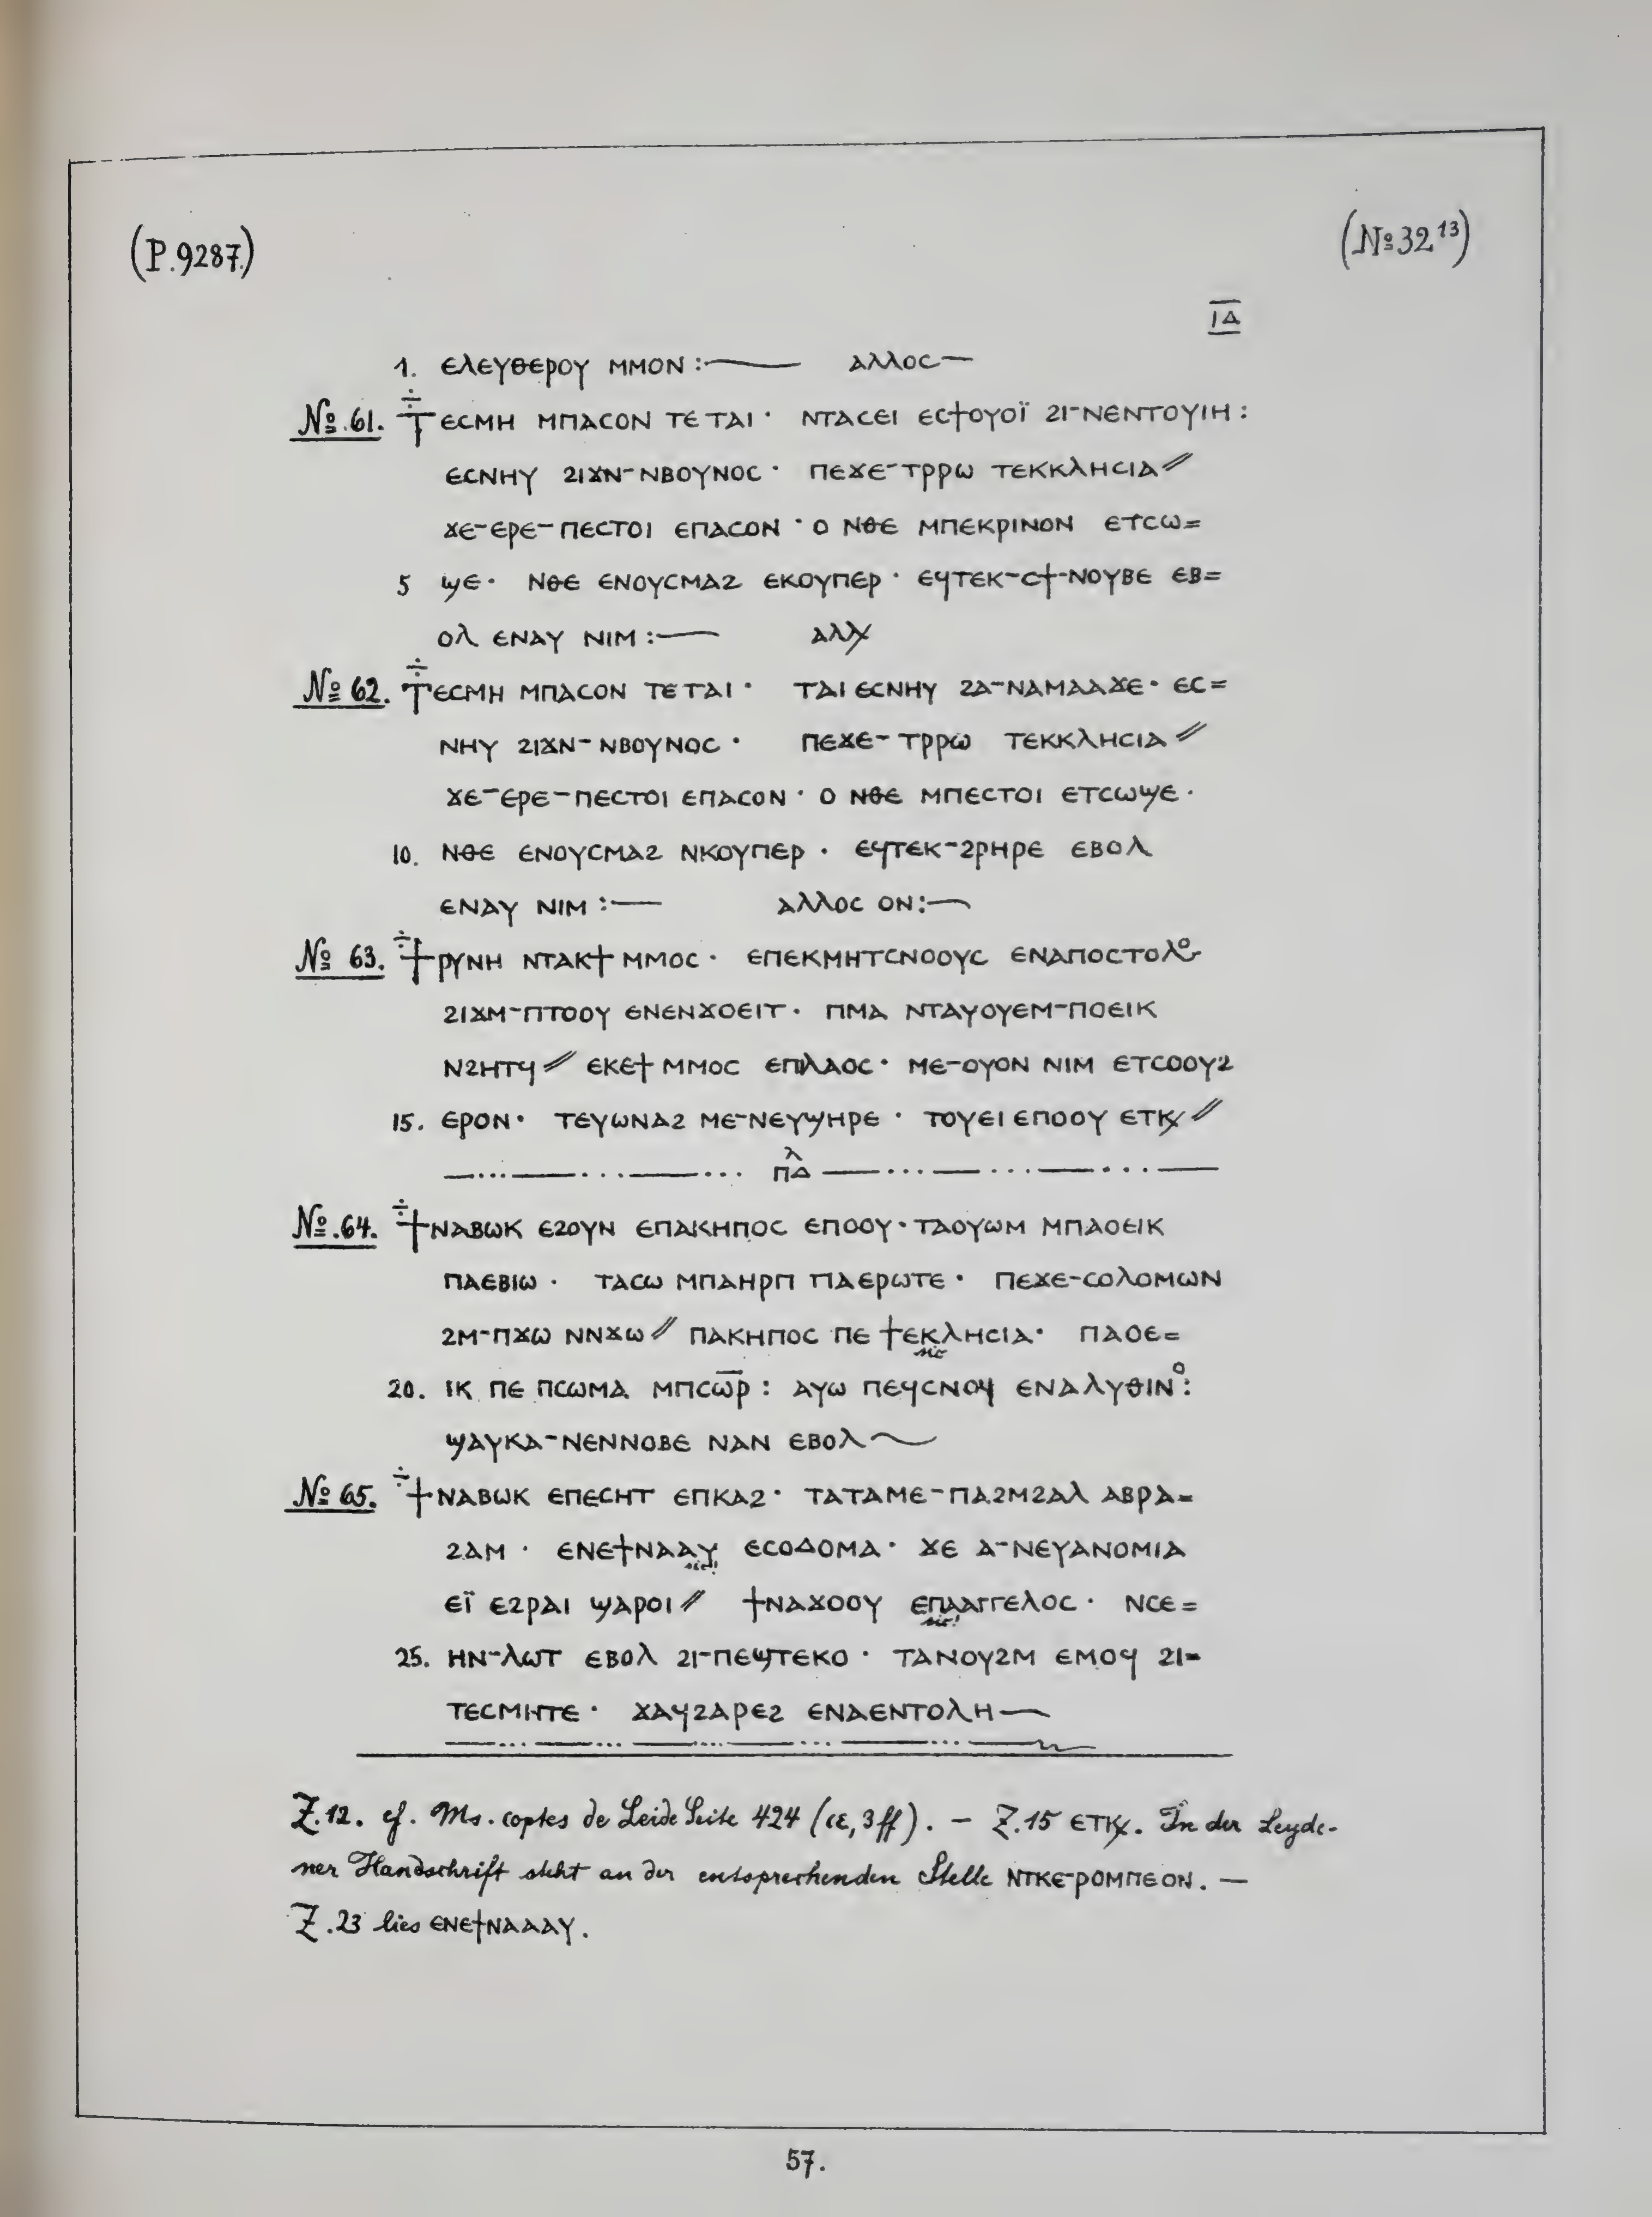 (P.9287.)
(№32¹³)
ⲒⲆ
1. ⲉⲗⲉⲩⲑⲉⲣⲟⲩ ⲙⲙⲟⲛ :—— ⲁⲗⲗⲟⲥ—
№ 61. ⲧⲉⲥⲙⲏ ⲙⲡⲁⲥⲟⲛ ⲧⲉ ⲧⲁⲓ · ⲛⲧⲁⲥⲉⲓ ⲉⲥϯⲟⲩⲟⲓ̈ ϩⲓ-ⲛⲉⲛⲧⲟⲩⲓⲏ :
ⲉⲥⲛⲏⲩ ϩⲓϫⲛ-ⲛⲃⲟⲩⲛⲟⲥ · ⲡⲉϫⲉ-ⲧⲣⲣⲱ ⲧⲉⲕⲕⲗⲏⲥⲓⲁ⫽
ϫⲉ-ⲉⲣⲉ-ⲡⲉⲥⲧⲟⲓ ⲉⲡⲁⲥⲟⲛ · ⲟ ⲛⲑⲉ ⲙⲡⲉⲕⲣⲓⲛⲟⲛ ⲉⲧⲥⲱ=
5 ϣⲉ · ⲛⲑⲉ ⲉⲛⲟⲩⲥⲙⲁϩ ⲉⲕⲟⲩⲡⲉⲣ · ⲉϥⲧⲉⲕ-ⲥϯ-ⲛⲟⲩⲃⲉ ⲉⲃ=
ⲟⲗ ⲉⲛⲁⲩ ⲛⲓⲙ :—— ⲁⲗⲗ
№ 62. ⲧⲉⲥⲙⲏ ⲙⲡⲁⲥⲟⲛ ⲧⲉ ⲧⲁⲓ · ⲧⲁⲓ ⲉⲥⲛⲏⲩ ϩⲁ-ⲛⲁⲙⲁⲁϫⲉ · ⲉⲥ=
ⲛⲏⲩ ϩⲓϫⲛ-ⲛⲃⲟⲩⲛⲟⲥ · ⲡⲉϫⲉ-ⲧⲣⲣⲱ ⲧⲉⲕⲕⲗⲏⲥⲓⲁ⫽
ϫⲉ-ⲉⲣⲉ-ⲡⲉⲥⲧⲟⲓ ⲉⲡⲁⲥⲟⲛ · ⲟ ⲛⲑⲉ ⲙⲡⲉⲥⲧⲟⲓ ⲉⲧⲥⲱϣⲉ ·
10. ⲛⲑⲉ ⲉⲛⲟⲩⲥⲙⲁϩ ⲛⲕⲟⲩⲡⲉⲣ · ⲉϥⲧⲉⲕ-ϩⲣⲏⲣⲉ ⲉⲃⲟⲗ
ⲉⲛⲁⲩ ⲛⲓⲙ :— ⲁⲗⲗⲟⲥ ⲟⲛ:—
№ 63. ϯⲣⲩⲛⲏ ⲛⲧⲁⲕϯ ⲙⲙⲟⲥ · ⲉⲡⲉⲕⲙⲏⲧⲥⲛⲟⲟⲩⲥ ⲉⲛⲁⲡⲟⲥⲧⲟⲗⲟ
ϩⲓϫⲙ-ⲡⲧⲟⲟⲩ ⲉⲛⲉⲛϫⲟⲉⲓⲧ · ⲡⲙⲁ ⲛⲧⲁⲩⲟⲩⲉⲙ-ⲡⲟⲉⲓⲕ
ⲛϩⲏⲧϥ⫽ ⲉⲕⲉϯ ⲙⲙⲟⲥ ⲉⲡⲗⲁⲟⲥ · ⲙⲉ-ⲟⲩⲟⲛ ⲛⲓⲙ ⲉⲧⲥⲟⲟⲩϩ
15. ⲉⲣⲟⲛ · ⲧⲉⲩⲱⲛⲁϩ ⲙⲉ-ⲛⲉⲩϣⲏⲣⲉ · ⲧⲟⲩⲉⲓ ⲉⲡⲟⲟⲩ ⲉⲧⲕ⫽
ⲡⲁⲗ
№.64. ϯⲛⲁⲃⲱⲕ ⲉϩⲟⲩⲛ ⲉⲡⲁⲕⲏⲡⲟⲥ ⲉⲡⲟⲟⲩ · ⲧⲁⲟⲩⲱⲙ ⲙⲡⲁⲟⲉⲓⲕ
ⲡⲁⲉⲃⲓⲱ · ⲧⲁⲥⲱ ⲙⲡⲁⲏⲣⲡ ⲡⲁⲉⲣⲱⲧⲉ · ⲡⲉϫⲉ-ⲥⲟⲗⲟⲙⲱⲛ
ϩⲙ-ⲡϫⲱ ⲛⲛϫⲱ⫽ ⲡⲁⲕⲏⲡⲟⲥ ⲡⲉ ϯⲉⲕⲗⲏⲥⲓⲁ · ⲡⲁⲟⲉ=
sic
20. ⲓⲕ ⲡⲉ ⲡⲥⲱⲙⲁ ⲙⲡⲥⲱ̅ⲣ̅ : ⲁⲩⲱ ⲡⲉϥⲥⲛⲟϥ ⲉⲛⲁⲗⲩⲑⲓⲛⲟ :
ϣⲁⲩⲕⲁ-ⲛⲉⲛⲛⲟⲃⲉ ⲛⲁⲛ ⲉⲃⲟⲗ~
№ 65. ϯⲛⲁⲃⲱⲕ ⲉⲡⲉⲥⲏⲧ ⲉⲡⲕⲁϩ · ⲧⲁⲧⲁⲙⲉ-ⲡⲁϩⲙϩⲁⲗ ⲁⲃⲣⲁ=
ϩⲁⲙ · ⲉⲛⲉϯⲛⲁⲁⲩ ⲉⲥⲟⲇⲟⲙⲁ · ϫⲉ ⲁ-ⲛⲉⲩⲁⲛⲟⲙⲓⲁ
sic!
ⲉⲓ̈ ⲉϩⲣⲁⲓ ϣⲁⲣⲟⲓ⫽ ϯⲛⲁϫⲟⲟⲩ ⲉⲡⲁⲁⲅⲅⲉⲗⲟⲥ · ⲛⲥⲉ=
sic!
25. ⲏⲛ-ⲗⲱⲧ ⲉⲃⲟⲗ ϩⲓ-ⲡⲉϣⲧⲉⲕⲟ · ⲧⲁⲛⲟⲩϩⲙ ⲉⲙⲟϥ ϩⲓ=
ⲧⲉⲥⲙⲏⲧⲉ · ϫⲁϥϩⲁⲣⲉϩ ⲉⲛⲁⲉⲛⲧⲟⲗⲏ—
Z.12. cf. Ms. coptes de Leide Seite 424 (ⲓⲉ, 3ff). – Z.15 ⲉⲧⲕ. In der Leyde-
ner Handschrift steht an der entsprechenden Stelle ⲛⲧⲕⲉ-ⲣⲟⲙⲡⲉ ⲟⲛ. —
Z.23 lies ⲉⲛⲉϯⲛⲁⲁⲁⲩ.
57.